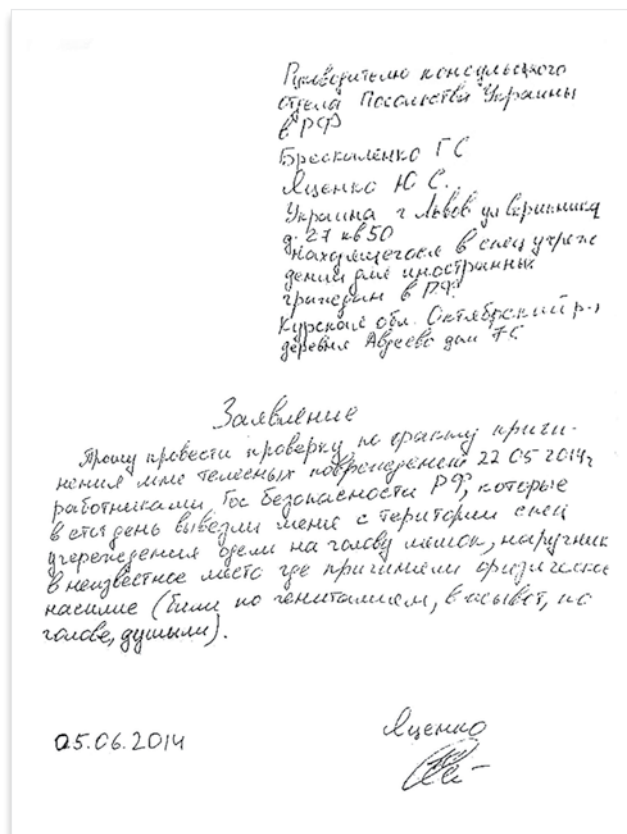 Руководителю консульского
отдела Посольства Украины
в РФ
Брескаленко Г С
Яценко Ю С.
Украина г Львов ул Керикница
д. 27 кв 50
находящегося в спец учреж
дении для иностранных
граждан в РФ.
Курская обл. Октябрьский р-н
деревня Авдеева дом 7С
Заявление
Прошу провести проверку по факту причи-
нения мне телесных повреждений 22 05 2014г
работниками Гос безопасности РФ, которые
в етот день вывезли меня с територии спец
учереждения одели на голову мешок, наручник
в неизвестное место где причиняли физическое
насилие (били по гениталиям, в живот, по
голове, душили).
05.06.2014
Яценко